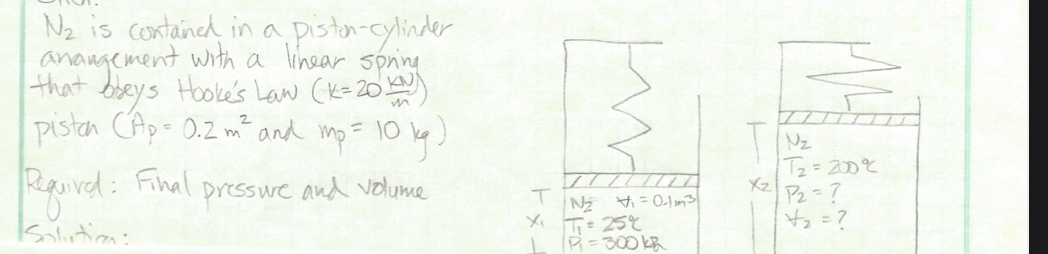 N2 is contained in a piston-cylinder
arrangement with a linear spring
that obeys Hooke's Law (k=20 kN/m)
piston (Ap = 0.2 m² and mp = 10 kg)
Required: Final pressure and volume
Solution:
T
x1
N2 V1 = 0.1m³
T1 = 25°C
P1 = 300 kPa
T
x2
N2
T2 = 200°C
P2 = ?
V2 = ?